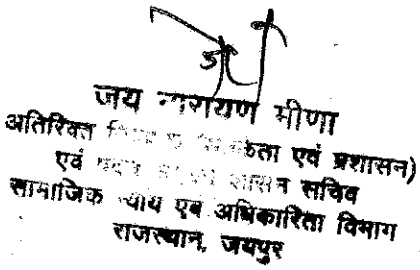 जय नारायण मीणा
अतिरिक्त एवं प्रशासन)
एवं शासन सचिव
सामाजिक न्याय एवं अधिकारिता विभाग
राजस्थान, जयपुर